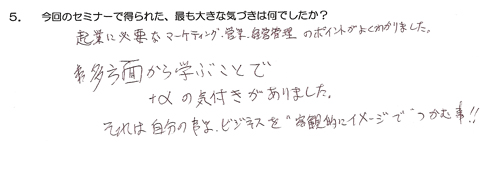 5. 今回のセミナーで得られた、最も大きな気づきは何でしたか？
起業に必要なマーケティング、営業、自営管理 のポイントがよくわかりました。
多方面から学ぶことで
+αの気付きがありました。
それは自分の 、ビジネスを"客観的にイメージで"つかむ事!!